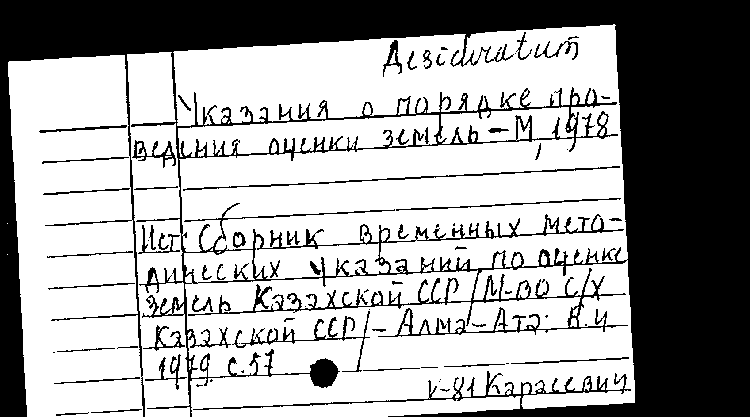 Desideratum
Указания о порядке про-
ведения оценки земель – М, 1978
Ист: Сборник временных мето-
дических указаний по оценке
земель Казахской ССР / М-во с/х
Казахской ССР / – Алма-Ата: Б.и.
1979. с.57
V-81 Карасевич